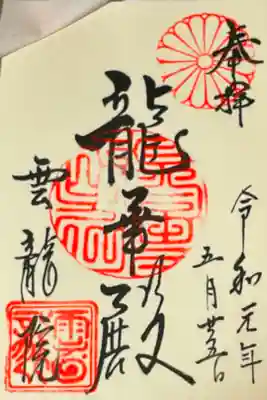 奉拝
令和元年
五月廿五日
龍華殿
雲龍院